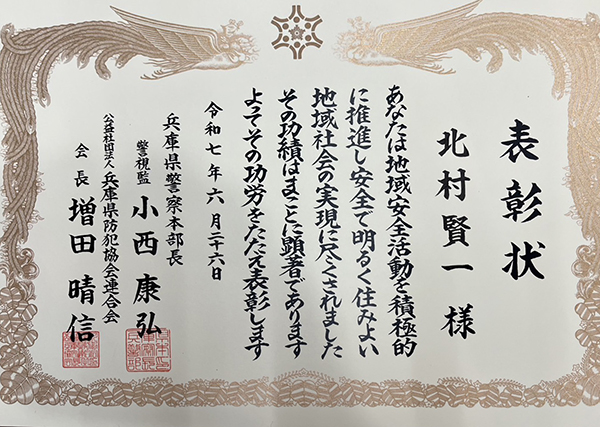 表彰状
北村賢一 様
あなたは地域安全活動を積極的
に推進し安全で明るく住みよい
地域社会の実現に尽くされました
その功績はまことに顕著であります
よってその功労をたたえ表彰します
令和七年六月二十六日
兵庫県警察本部長
警視監 小西康弘
公益社団法人 兵庫県防犯協会連合会
会長 増田晴信